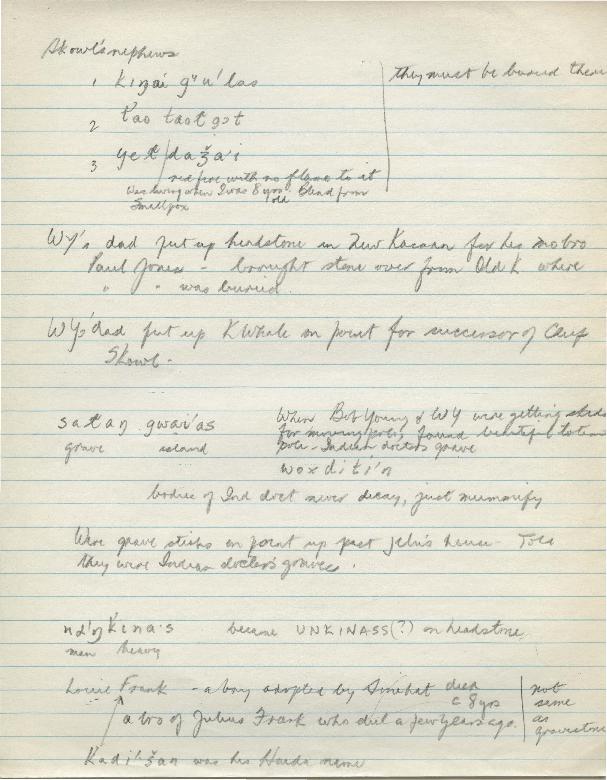 Skowl's nephews
1 kiŋai gʷu'las
they must be buried there
2 t'ao taoł got
3 yeł daʒa'i
red fire with no flame to it
Was living when I was 8 yrs old. Blind from
Smallpox
WY's dad put up headstone in New Kasaan for his mo bro
Paul Jones - brought stone over from Old K where
" " was buried.
WY's dad put up K Whale on point for successor of Chief
Skowl -
satan gwai'as
grave island
When Bob Young & WY were getting skids
for moving poles, found beautiful totem
pole - Indian doctors grave
woxditi'n
bodies of Ind doct never decay, just mummify
Were grave sticks on point up past John's house - Told
they were Indian doctor's graves.
na'ŋkina's became UNKINASS(?) on headstone
man heavy
Louie Frank - a boy adopted by died
c 8 yrs
a bro of Julius Frank who died a few years ago.
not
same
as
gravestone
Kadi'ʒan was his Haida name